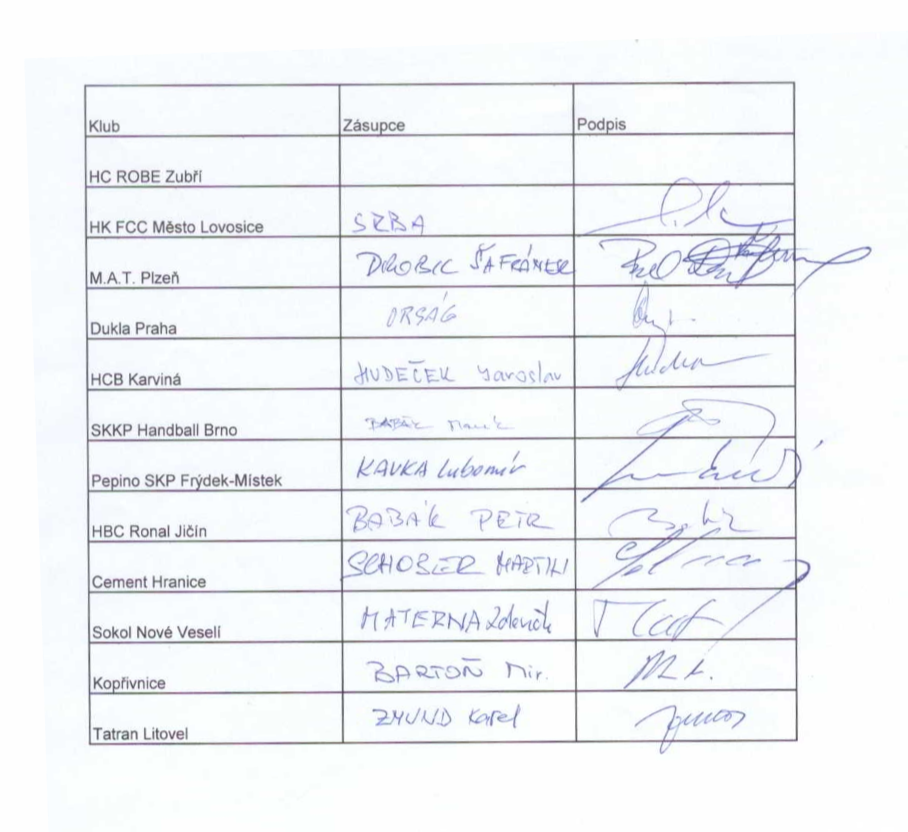 Klub Zásupce Podpis
HC ROBE Zubří
HK FCC Město Lovosice SRBA
M.A.T. Plzeň DROBIL ŠAFRÁNEK
Dukla Praha ORSÁG
HCB Karviná HUDEČEK Jaroslav
SKKP Handball Brno BABÁK Marek
Pepino SKP Frýdek-Místek KAVKA Lubomír
HBC Ronal Jičín BABÁK PETR
Cement Hranice SCHOBER MARTIN
Sokol Nové Veselí MATERNA Zdeněk
Kopřivnice BARTOŇ Mir.
Tatran Litovel ZMUND Karel